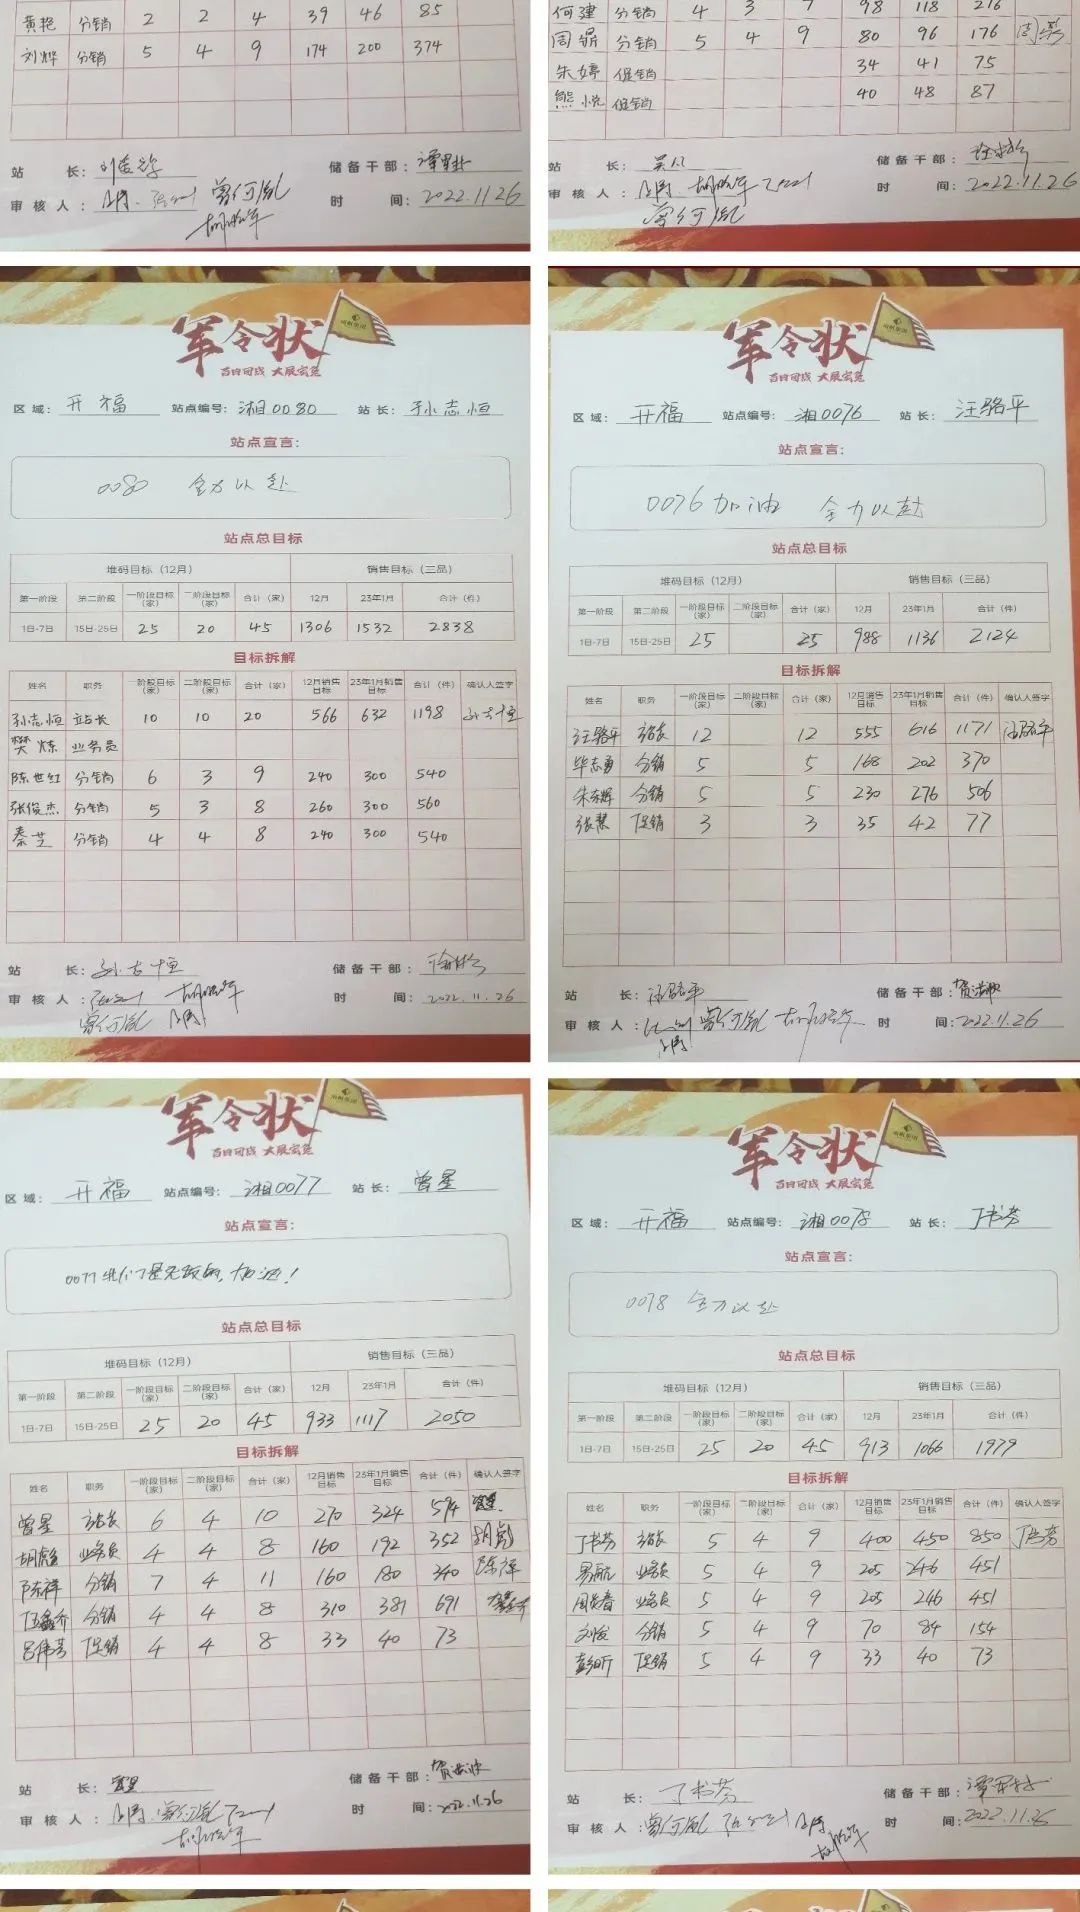 黄艳 分销 2 2 4 39 46 85
刘烨 分销 5 4 9 174 200 374
站 长:
储备干部:
审核人: 曾何胤
时 间: 2022.11.26
何建 分销 4 3 7 98 118 216
周 分销 5 4 9 80 96 176
朱婷 促销 34 41 75
熊悦 促销 40 48 87
站 长:
储备干部:
审核人:
时 间: 2022.11.26
曾何胤
军令状
百日会战 大展宏兔
区域: 开福 站点编号: 湘0080 站长: 孙志恒
站点宣言:
0080 全力以赴
站点总目标
堆码目标(12月) 销售目标(三品)
第一阶段 第二阶段 一阶段目标(家) 二阶段目标(家) 合计(家) 12月 23年1月 合计(件)
1日-7日 15日-25日 25 20 45 1306 1532 2838
目标拆解
姓名 职务 一阶段目标(家) 二阶段目标(家) 合计(家) 12月销售目标 23年1月销售目标 合计(件) 确认人签字
孙志恒 站长 10 10 20 566 632 1198 孙志恒
樊炼 业务员
陈世红 分销 6 3 9 240 300 540
张俊杰 分销 5 3 8 260 300 560
秦芝 分销 4 4 8 240 300 540
站 长: 孙志恒 储备干部:
审核人: 时 间: 2022.11.26
曾何胤
军令状
百日会战 大展宏兔
区域: 开福 站点编号: 湘0076 站长: 汪骆平
站点宣言:
0076加油 全力以赴
站点总目标
堆码目标(12月) 销售目标(三品)
第一阶段 第二阶段 一阶段目标(家) 二阶段目标(家) 合计(家) 12月 23年1月 合计(件)
1日-7日 15日-25日 25 25 988 1136 2124
目标拆解
姓名 职务 一阶段目标(家) 二阶段目标(家) 合计(家) 12月销售目标 23年1月销售目标 合计(件) 确认人签字
汪骆平 站长 12 12 555 616 1171 汪骆平
毕志勇 分销 5 5 168 202 370
朱东辉 分销 5 5 230 276 506
张慧 促销 3 3 35 42 77
站 长: 汪骆平 储备干部:
审核人: 曾何胤 时 间: 2022.11.26
军令状
百日会战 大展宏兔
区域: 开福 站点编号: 湘0077 站长: 曾星
站点宣言:
0077我们是无敌的,加油!
站点总目标
堆码目标(12月) 销售目标(三品)
第一阶段 第二阶段 一阶段目标(家) 二阶段目标(家) 合计(家) 12月 23年1月 合计(件)
1日-7日 15日-25日 25 20 45 933 1117 2050
目标拆解
姓名 职务 一阶段目标(家) 二阶段目标(家) 合计(家) 12月销售目标 23年1月销售目标 合计(件) 确认人签字
曾星 站长 6 4 10 270 324 594 曾星
胡彪 业务员 4 4 8 160 192 352 胡彪
陈祥 分销 7 4 11 160 180 340 陈祥
分销 4 4 8 310 381 691
吕伟芳 促销 4 4 8 33 40 73
站 长: 曾星 储备干部:
审核人: 曾何胤 时 间: 2022.11.26
军令状
百日会战 大展宏兔
区域: 开福 站点编号: 湘0078 站长: 丁书芬
站点宣言:
0078 全力以赴
站点总目标
堆码目标(12月) 销售目标(三品)
第一阶段 第二阶段 一阶段目标(家) 二阶段目标(家) 合计(家) 12月 23年1月 合计(件)
1日-7日 15日-25日 25 20 45 913 1066 1979
目标拆解
姓名 职务 一阶段目标(家) 二阶段目标(家) 合计(家) 12月销售目标 23年1月销售目标 合计(件) 确认人签字
丁书芬 站长 5 4 9 400 450 850 丁书芬
易航 业务员 5 4 9 205 246 451
业务员 5 4 9 205 246 451
刘俊 分销 5 4 9 70 84 154
彭昕 促销 5 4 9 33 40 73
站 长: 丁书芬 储备干部:
审核人: 曾何胤 时 间: 2022.11.26